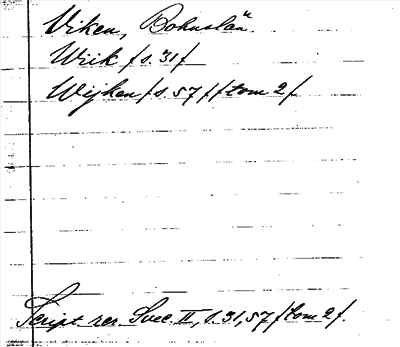 Viken, Bohuslän.
Wiik /s. 31/
Wijken /s. 57/ /tom 2/.
Script. rer. Svec. II, s. 31, 57 /tom 2/.